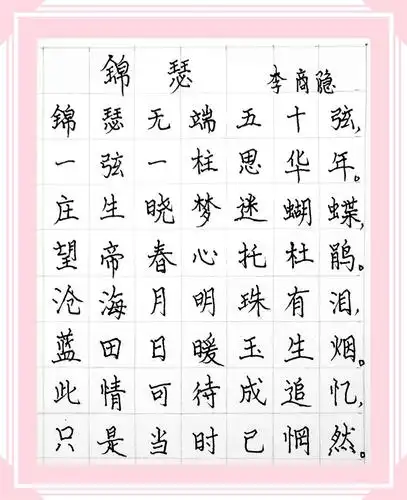 錦瑟 李商隐
錦瑟无端五十弦,
一弦一柱思华年。
庄生晓梦迷蝴蝶,
望帝春心托杜鹃。
沧海月明珠有泪,
蓝田日暖玉生烟。
此情可待成追忆,
只是当时已惘然。